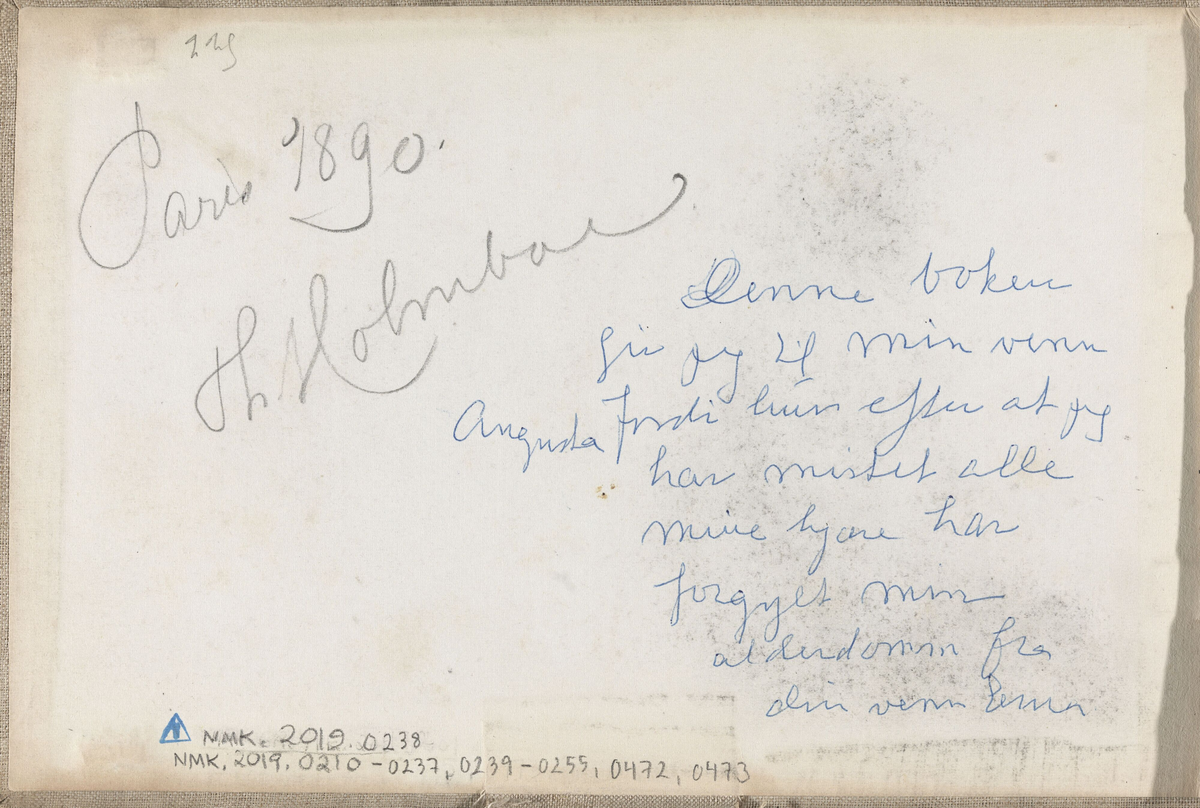 229
Paris 1890.
Th. Holmboe
Denne boken
gir jeg til min venn
Augusta fordi hun efter at jeg
har mistet alle
mine kjære har
forgylt min
alderdomm fra
din venn Erna
NMK. 2019. 0238
NMK. 2019. 0210 - 0237, 0239 - 0255, 0472, 0473